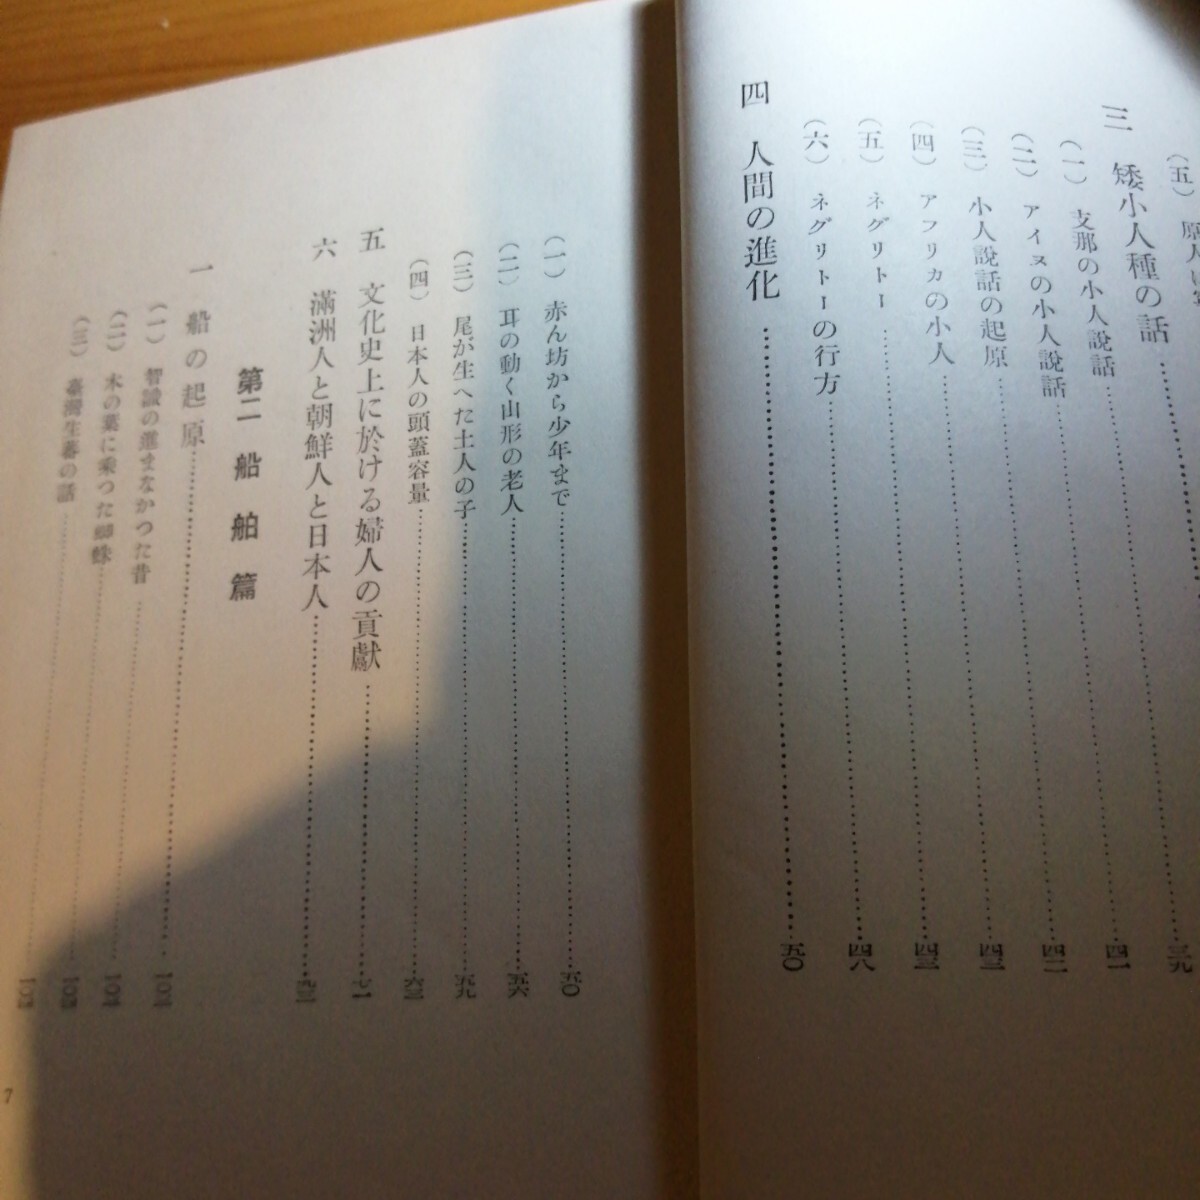 三 矮小人種の話……三九
(一) 支那の小人說話……四一
(二) アイヌの小人說話……四二
(三) 小人說話の起原……四三
(四) アフリカの小人……四三
(五) ネグリトー……四八
(六) ネグリトーの行方
四 人間の進化……五〇
(一) 赤ん坊から少年まで……五〇
(二) 耳の動く山形の老人……五六
(三) 尾が生へた土人の子……五九
(四) 日本人の頭蓋容量……六三
五 文化史上に於ける婦人の貢獻……七一
六 滿洲人と朝鮮人と日本人……九三
第二 船舶篇
一 船の起原
(一) 智識の進まなかつた昔
(二) 木の葉に乘つた蜘蛛
(三) 臺灣生蕃の話
7